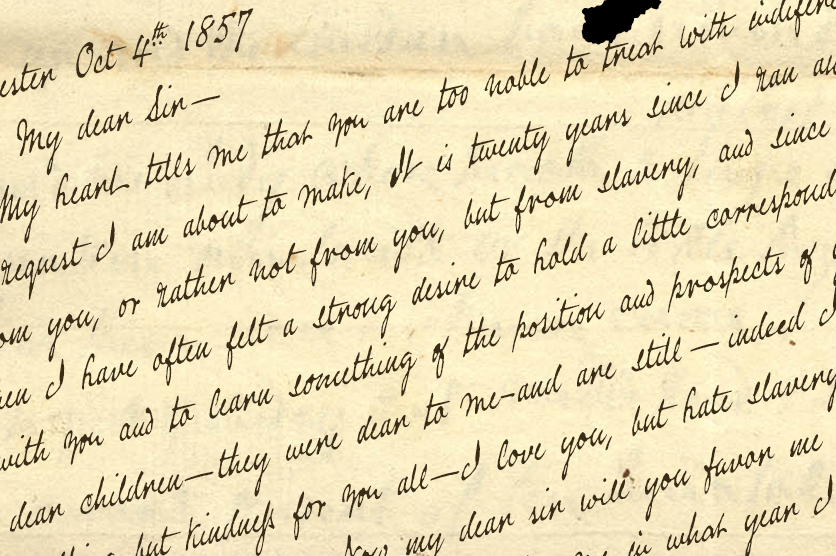 ester Oct 4th 1857
My dear Sir—
My heart tells me that you are too noble to treat with indiffere
request I am about to make, It is twenty years since I ran aw
om you, or rather not from you, but from slavery, and since
hen I have often felt a strong desire to hold a little correspond
with you and to learn something of the position and prospects of
dear children—they were dear to me—and are still—indeed I
but kindness for you all—I love you, but hate slavery
my dear sir will you favor me
in what year I